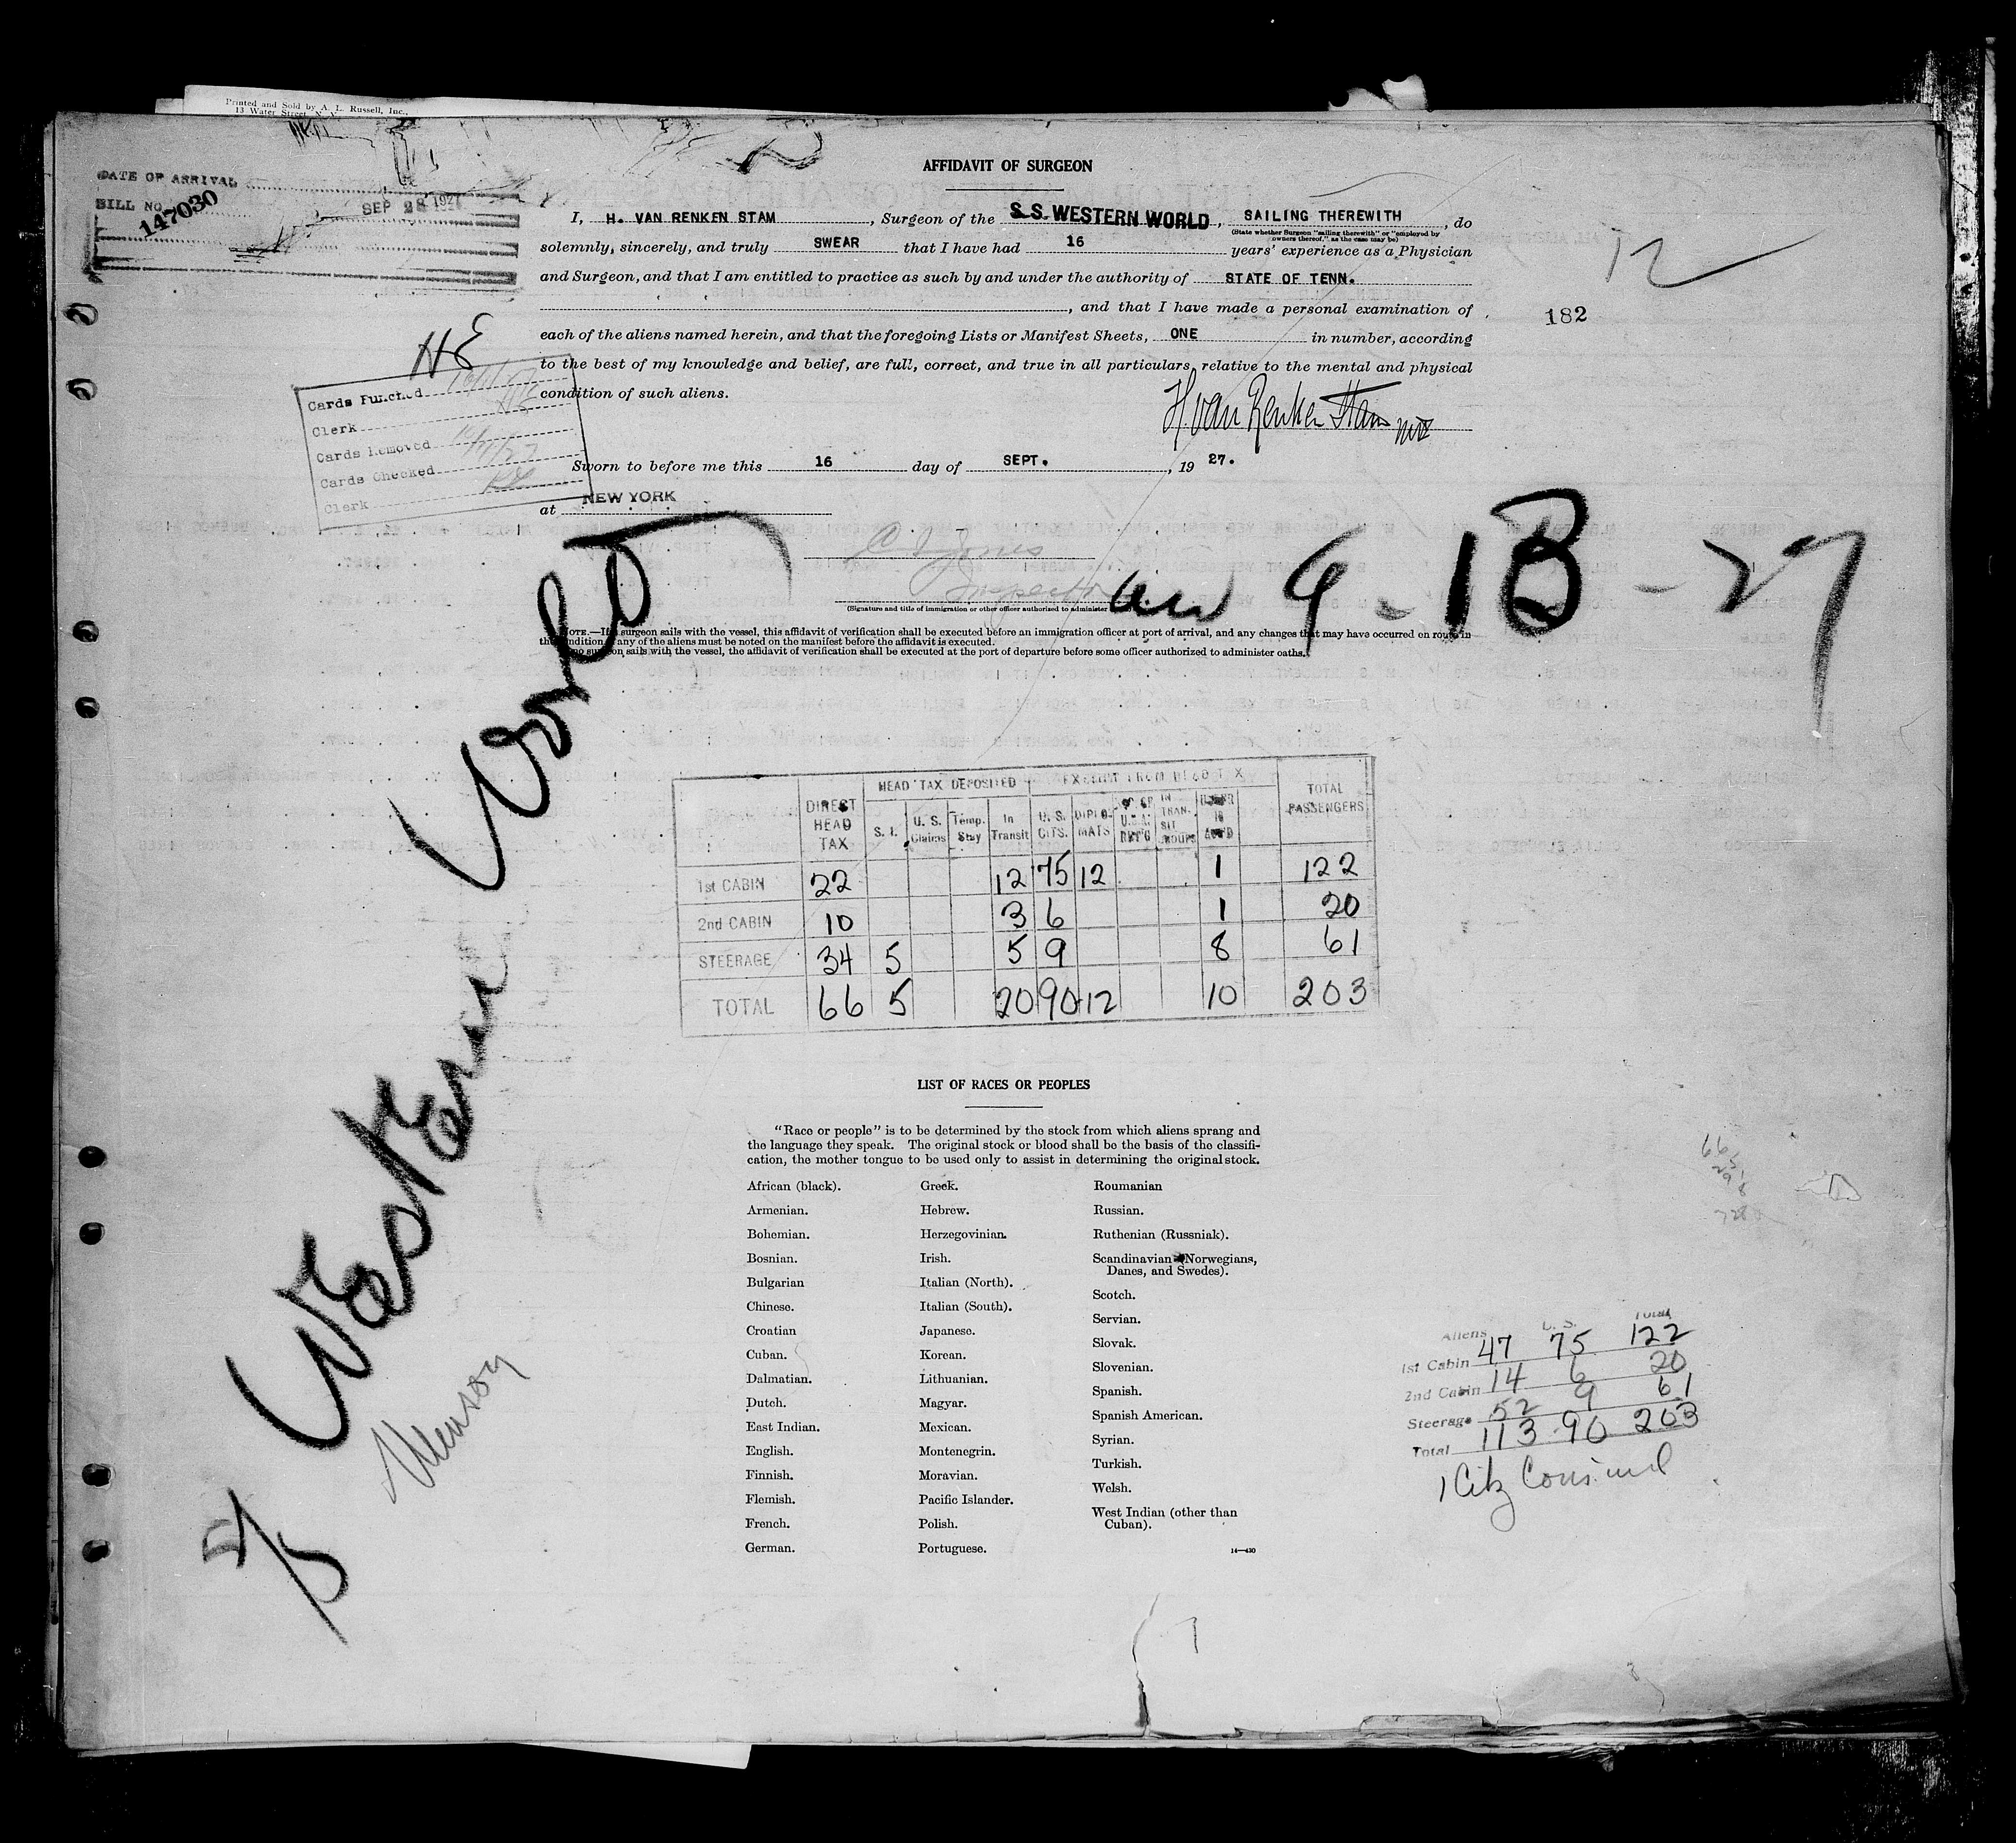 Printed and Sold by A. L. Russell, Inc.,
13 Water Street, N. Y.
DATE OF ARRIVAL
BILL NO.
147030
SEP 28 192
AFFIDAVIT OF SURGEON
I, H. VAN RENKEN STAM, Surgeon of the S.S. WESTERN WORLD, SAILING THEREWITH, do
(State whether Surgeon "sailing therewith" or "employed by
owners thereof," as the case may be)
solemnly, sincerely, and truly SWEAR that I have had 16 years' experience as a Physician
and Surgeon, and that I am entitled to practice as such by and under the authority of STATE OF TENN.
, and that I have made a personal examination of
each of the aliens named herein, and that the foregoing Lists or Manifest Sheets, ONE in number, according
to the best of my knowledge and belief, are full, correct, and true in all particulars relative to the mental and physical
condition of such aliens.
12
182
HE
Cards Punched
Clerk
Cards Removed
Cards Checked
Clerk
H. van Renken Stam MD
Sworn to before me this 16 day of SEPT., 19 27.
at NEW YORK
Jones
Inspector
(Signature and title of immigration or other officer authorized to administer
9-13-27
NOTE.—If a surgeon sails with the vessel, this affidavit of verification shall be executed before an immigration officer at port of arrival, and any changes that may have occurred en route in
the condition of any of the aliens must be noted on the manifest before the affidavit is executed.
If no surgeon sails with the vessel, the affidavit of verification shall be executed at the port of departure before some officer authorized to administer oaths.
Western World
Munson
DIRECT HEAD TAX HEAD TAX DEPOSITED EXEMPT FROM HEAD TAX TOTAL PASSENGERS
S. I. U. S. Claims Temp. Stay In Transit U. S. CITS. DIPLOMATS IN TRANSIT GROUPS UNDER 16 ACC'D
1st CABIN 22 12 75 12 1 122
2nd CABIN 10 3 6 1 20
STEERAGE 34 5 5 9 8 61
TOTAL 66 5 20 90 12 10 203
LIST OF RACES OR PEOPLES
"Race or people" is to be determined by the stock from which aliens sprang and
the language they speak. The original stock or blood shall be the basis of the classifi-
cation, the mother tongue to be used only to assist in determining the original stock.
African (black).
Armenian.
Bohemian.
Bosnian.
Bulgarian
Chinese.
Croatian
Cuban.
Dalmatian.
Dutch.
East Indian.
English.
Finnish.
Flemish.
French.
German.
Greek.
Hebrew.
Herzegovinian.
Irish.
Italian (North).
Italian (South).
Japanese.
Korean.
Lithuanian.
Magyar.
Mexican.
Montenegrin.
Moravian.
Pacific Islander.
Polish.
Portuguese.
Roumanian
Russian.
Ruthenian (Russniak).
Scandinavian (Norwegians,
Danes, and Swedes).
Scotch.
Servian.
Slovak.
Slovenian.
Spanish.
Spanish American.
Syrian.
Turkish.
Welsh.
West Indian (other than
Cuban).
14—430
Aliens U. S. Total
1st Cabin 47 75 122
2nd Cabin 14 6 20
Steerage 52 9 61
Total 113 90 203